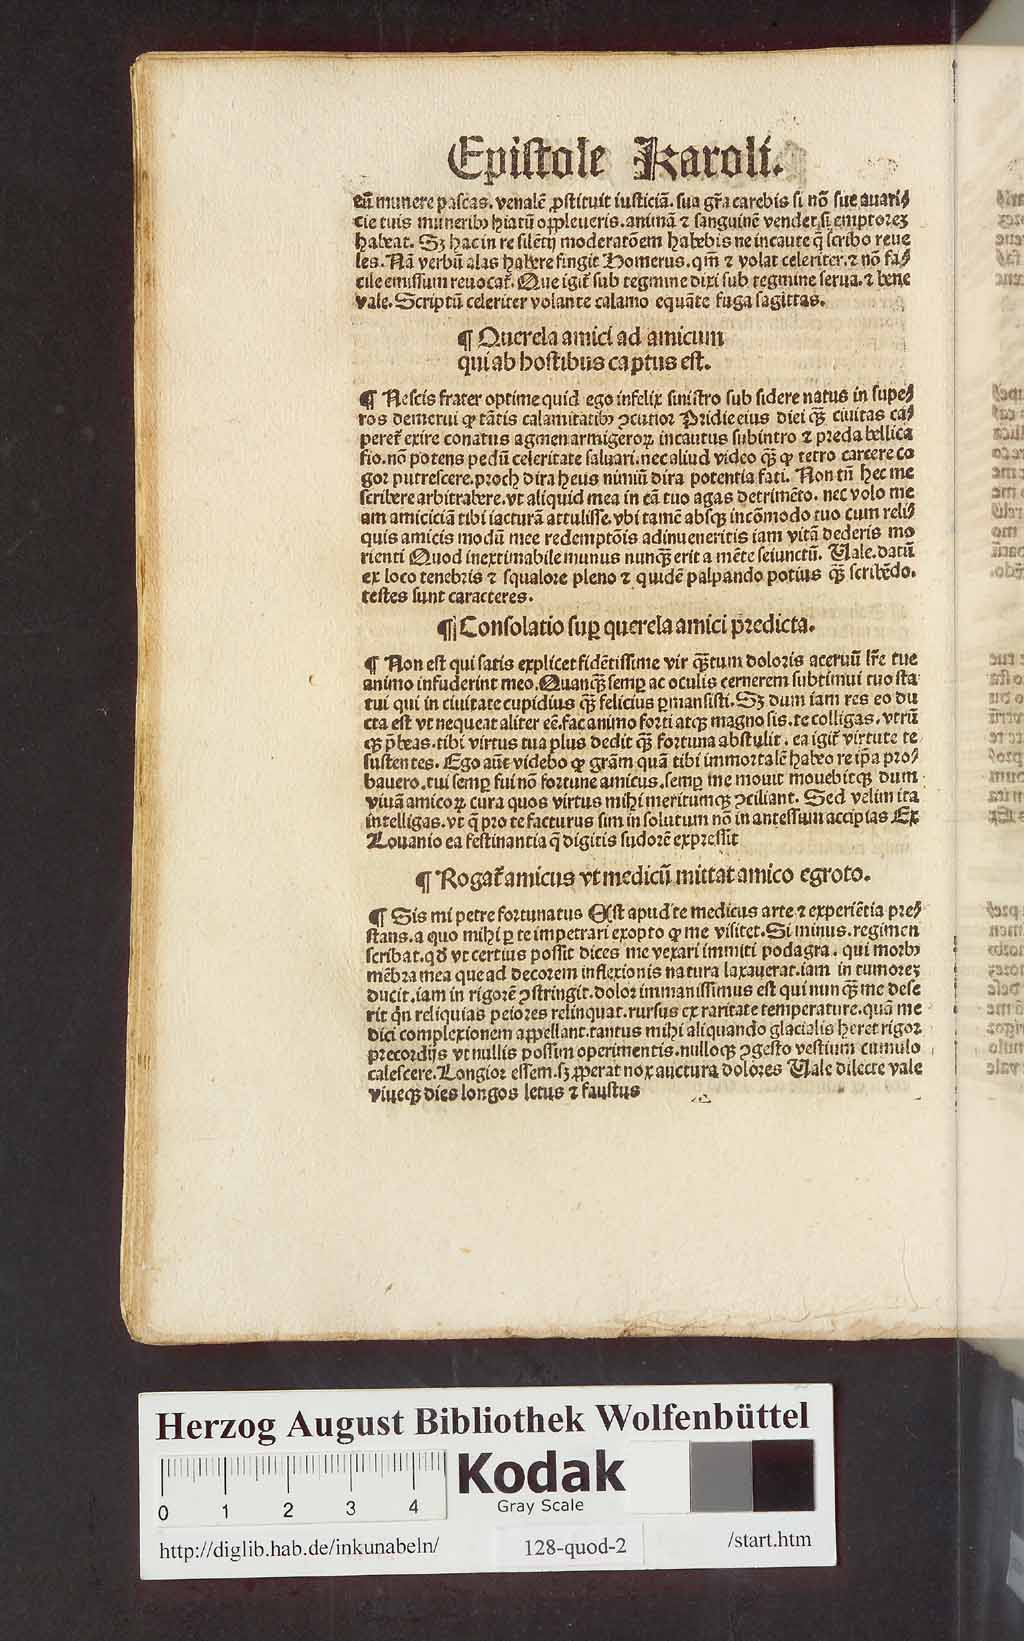 Epistole Karoli.
eū munere pascas. venalē ꝓstituit iusticiā. sua gr̄a carebis si nō sue auari⸗
cie tuis munerib⁹ hiatū oppleueris. animā ⁊ sanguinē vendet si emptorez
habeat. Sꝫ hac in re silētij moderatōem habebis ne incaute q̄ scribo reue
les. Nā verbū alas habere fingit Homerus. qm̄ ⁊ volat celeriter. ⁊ nō fa⸗
cile emissum reuocat̄. Que igit̄ sub tegmine dixi sub tegmine serua. ⁊ bene
vale. Scriptū celeriter volante calamo equāte fuga sagittas.
¶ Querela amici ad amicum
qui ab hostibus captus est.
¶ Nescis frater optime quid ego infelix sinistro sub sidere natus in supe⸗
ros demerui ꝙ tātis calamitatib⁹ ꝯcutior Pridie eius diei qꝫ̄ ciuitas ca⸗
peret̄ exire conatus agmen armigeroꝝ incautus subintro ⁊ preda bellica
fio. nō potens pedū celeritate saluari. nec aliud video qꝫ̄ ꝙ tetro carcere co
gor putrescere. proch dira heus nimiū dira potentia fati. Non tn̄ hec me
scribere arbitrabere. vt aliquid mea in cā tuo agas detrimēto. nec volo me
am amiciciā tibi iacturā attulisse. vbi tamē absqꝫ incōmodo tuo cum reli⸗
quis amicis modū mee redemptōis adinueneritis iam vitā dederis mo
rienti Quod inextimabile munus nunqꝫ̄ erit a mēte seiunctū. Uale. datū
ex loco tenebris ⁊ squalore pleno ⁊ quidē palpando potius qꝫ̄ scribēdo.
testes sunt caracteres.
¶ Consolatio suꝑ querela amici predicta.
¶ Non est qui satis explicet fidētissime vir qꝫ̄tum doloris aceruū lr̄e tue
animo infuderint meo. Quanqꝫ̄ semꝑ ac oculis cernerem subtimui tuo sta
tui qui in ciuitate cupidius qꝫ̄ felicius ꝑmansisti. Sꝫ dum iam res eo du
cta est vt nequeat aliter eē. fac animo forti atqꝫ magno sis. te colligas. vtrū
qꝫ p̄beas. tibi virtus tua plus dedit qꝫ̄ fortuna abstulit. ea igit̄ virtute te
sustentes. Ego aūt videbo ꝙ gram quā tibi immortalē habeo re ip̄a pro⸗
bauero. tui semꝑ fui nō fortune amicus. semꝑ me mouit mouebitqꝫ dum
viuā amicoꝝ cura quos virtus mihi meritumqꝫ ꝯciliant. Sed velim ita
intelligas. vt q̄ pro te facturus sim in solutum nō in antessum accipias Ex
Louanio ea festinantia q̄ digitis sudorē expressit
¶ Rogat̄ amicus vt medicū mittat amico egroto.
¶ Sis mi petre fortunatus Est apud te medicus arte ⁊ experiētia pre⸗
stans. a quo mihi ꝑ te impetrari exopto ꝙ me visitet. Si minus. regimen
scribat. qd̄ vt certius possit dices me vexari immiti podagra. qui morb⁹
mēbra mea que ad decorem inflexionis natura laxauerat. iam in tumorez
ducit. iam in rigorē ꝯstringit. dolor immanissimus est qui nunqꝫ̄ me dese
rit qn̄ reliquias peiores relinquat. rursus ex raritate temperature. quā me
dici complexionem appellant. tantus mihi aliquando glacialis heret rigor
precordijs vt nullis possim operimentis. nulloqꝫ ꝯgesto vestium cumulo
calescere. Longior essem. sꝫ ꝓperat nox auctura dolores Uale dilecte vale
viueqꝫ dies longos letus ⁊ faustus
Herzog August Bibliothek Wolfenbüttel
0 1 2 3 4
Kodak
Gray Scale
http://diglib.hab.de/inkunabeln/ 128-quod-2 /start.htm